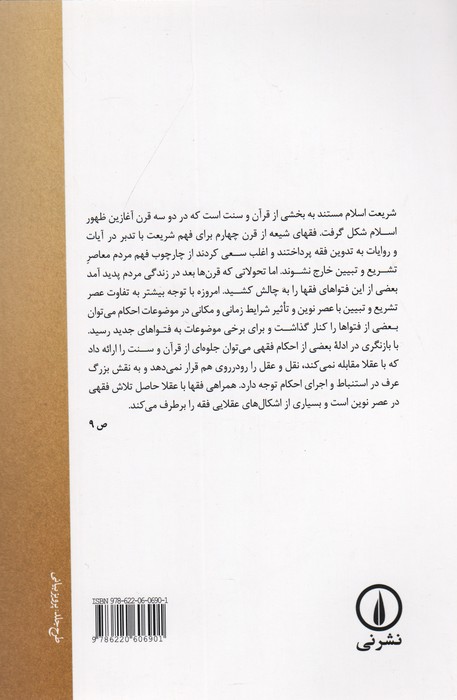 شریعت اسلام مستند به بخشی از قرآن و سنت است که در دو سه قرن آغازین ظهور
اسلام شکل گرفت. فقهای شیعه از قرن چهارم برای فهم شریعت با تدبر در آیات
و روایات به تدوین فقه پرداختند و اغلب سعی کردند از چارچوب فهم مردم معاصر
تشریع و تبیین خارج نشوند. اما تحولاتی که قرن‌ها بعد در زندگی مردم پدید آمد
بعضی از این فتواهای فقها را به چالش کشید. امروزه با توجه بیشتر به تفاوت عصر
تشریع و تبیین با عصر نوین و تأثیر شرایط زمانی و مکانی در موضوعات احکام می‌توان
بعضی از فتواها را کنار گذاشت و برای برخی موضوعات به فتواهای جدید رسید.
با بازنگری در ادلهٔ بعضی از احکام فقهی می‌توان جلوه‌ای از قرآن و سنت را ارائه داد
که با عقلا مقابله نمی‌کند، نقل و عقل را رودرروی هم قرار نمی‌دهد و به نقش بزرگ
عرف در استنباط و اجرای احکام توجه دارد. همراهی فقها با عقلا حاصل تلاش فقهی
در عصر نوین است و بسیاری از اشکال‌های عقلایی فقه را برطرف می‌کند.
ص ۹
طرح جلد: پرویز بیانی
ISBN 978-622-06-0690-1
9 786220 606901
نشر نی